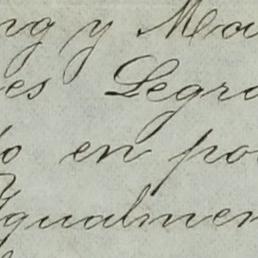 ng y Ma
es Legra
o en po
gualmen